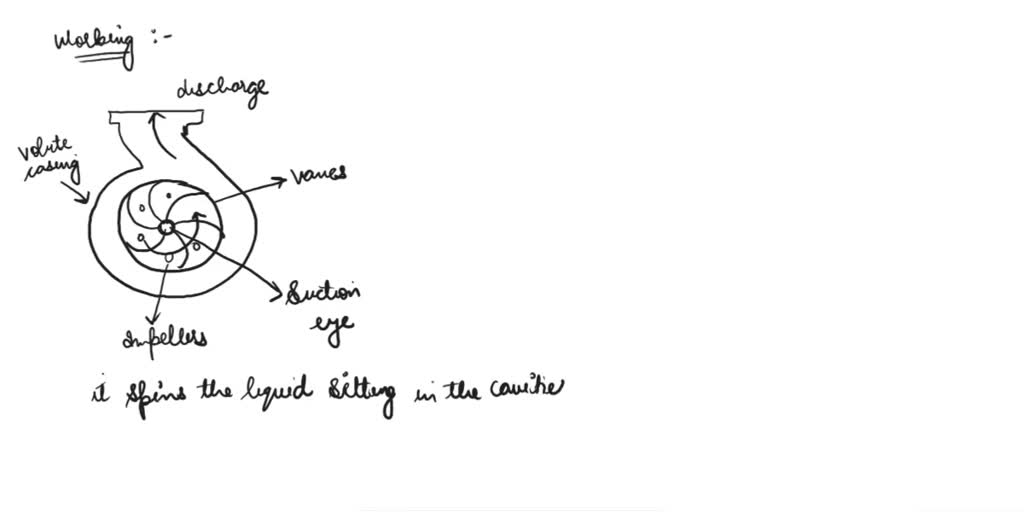 Working :-
discharge
volute
casing
vanes
Suction
eye
impellers
it spins the liquid sitting in the cavitie